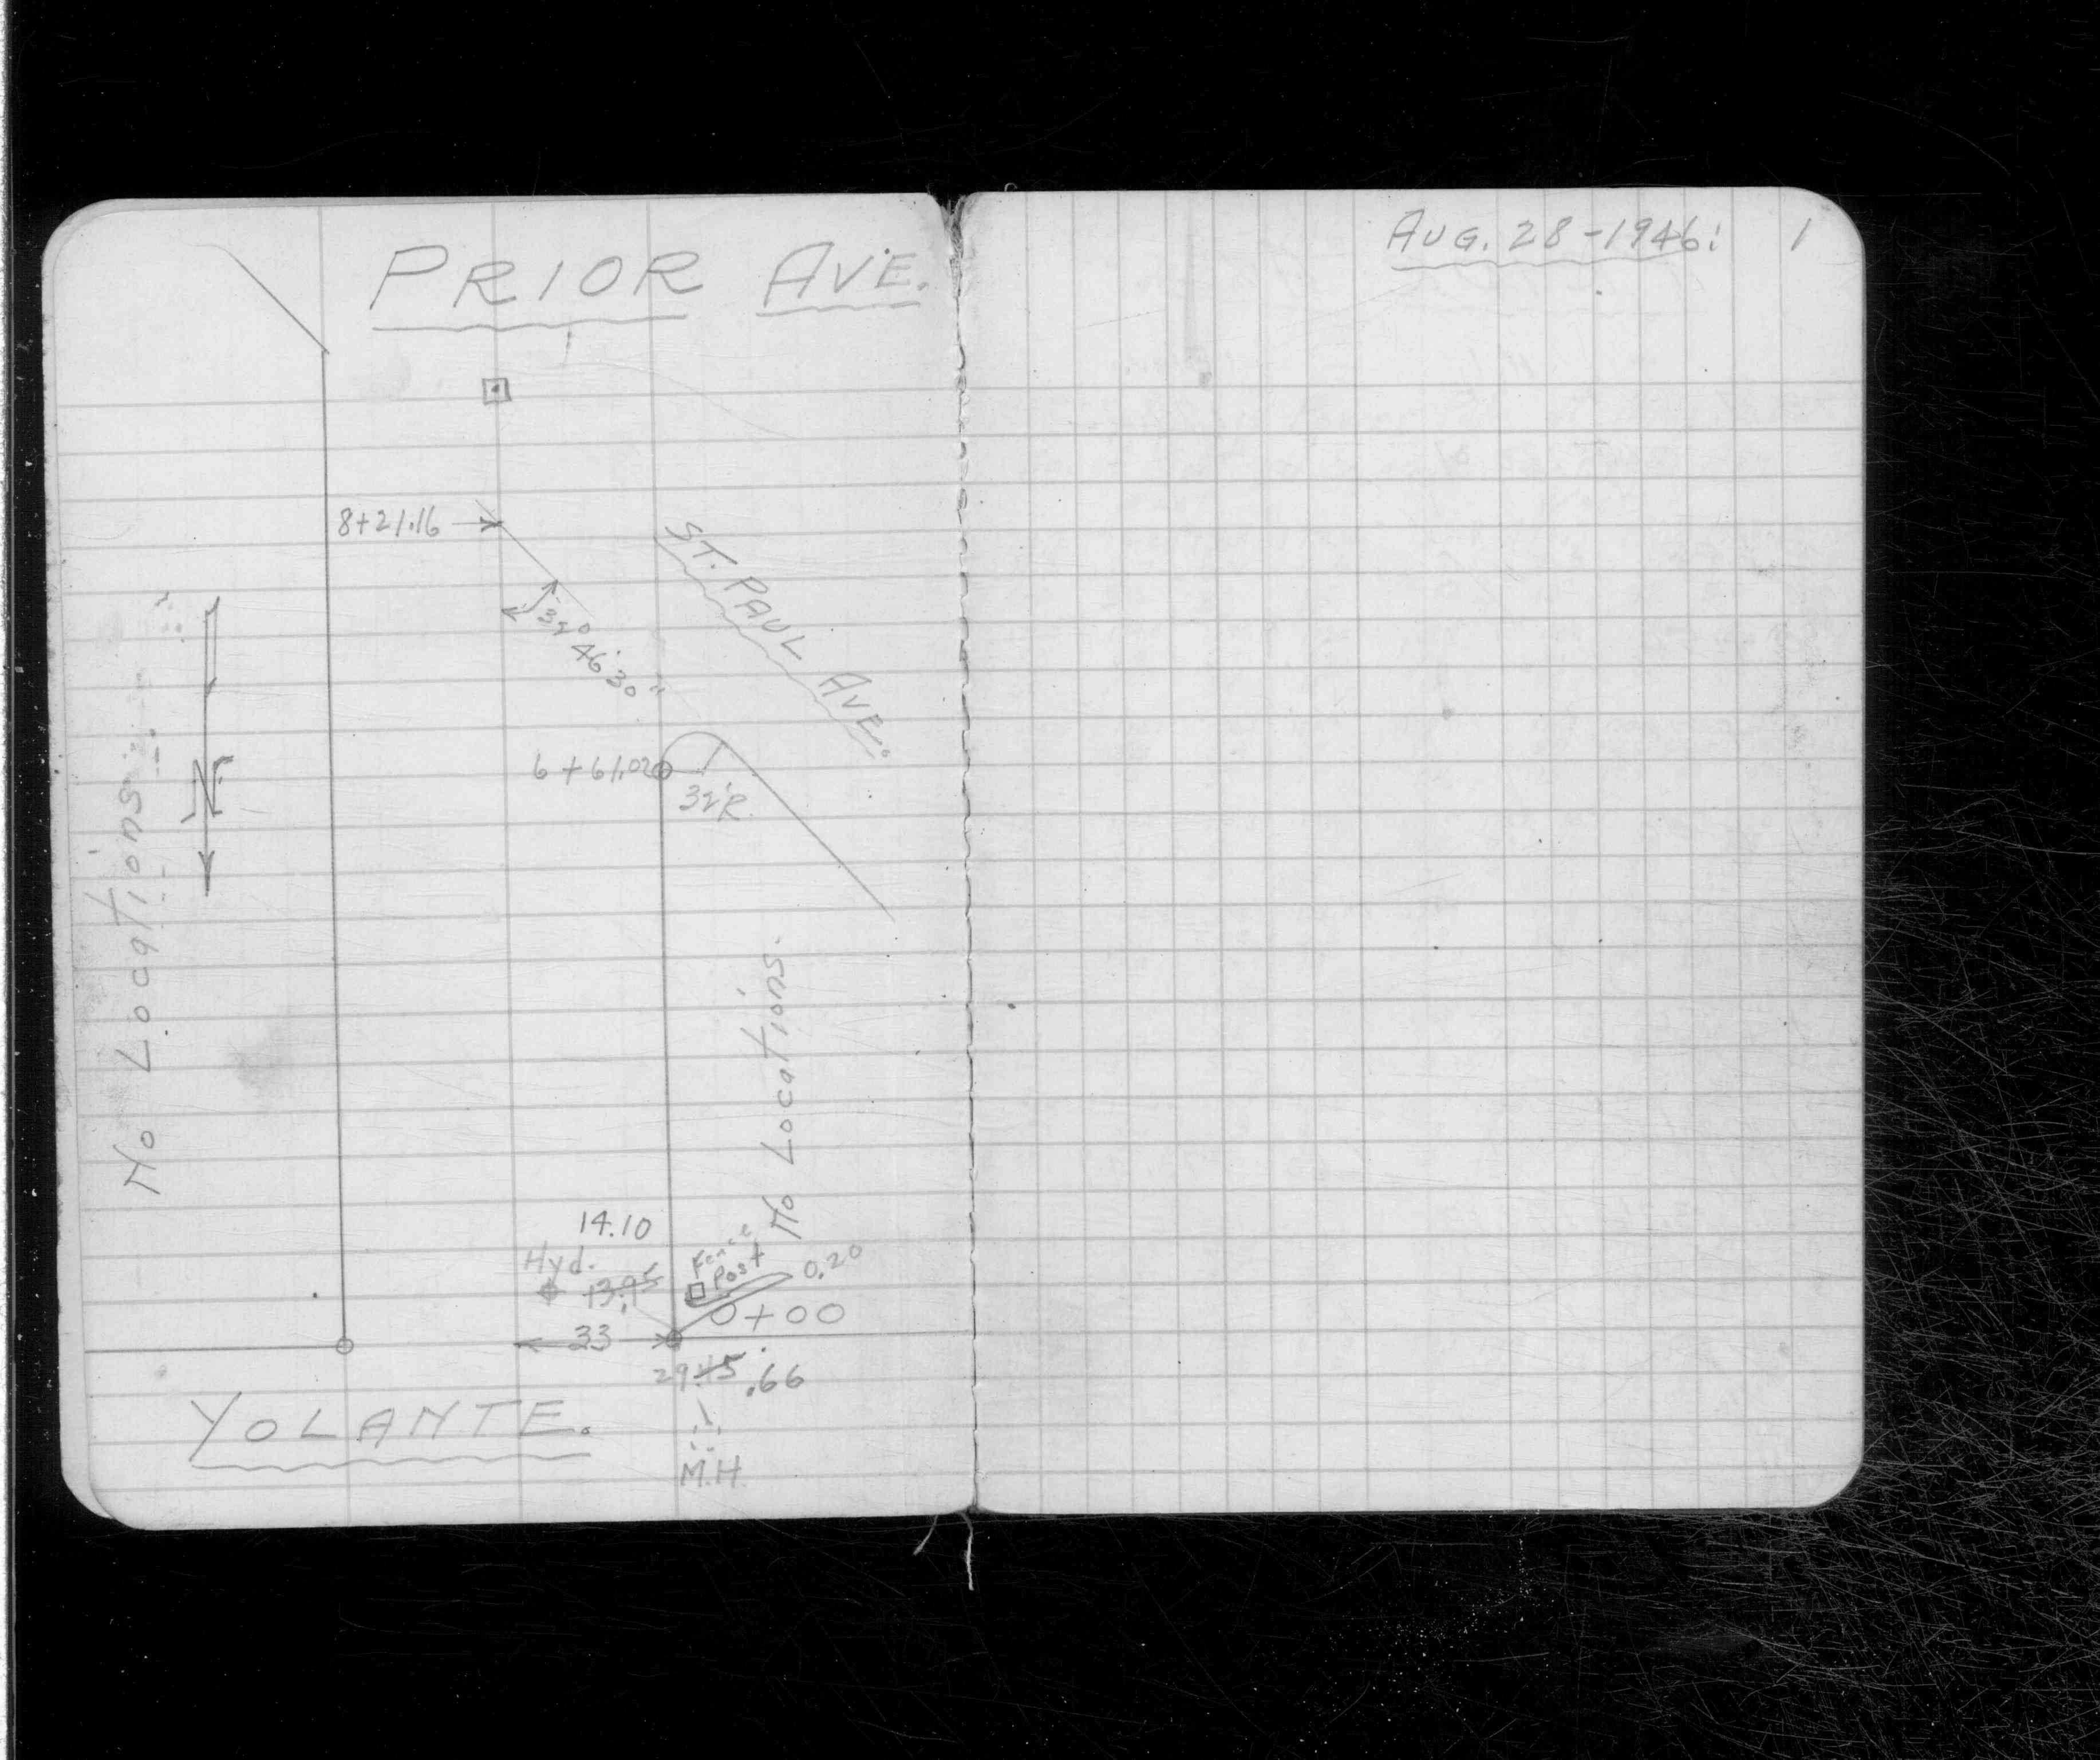 PRIOR AVE.
8+21.16
32° 46' 30"
ST. PAUL AVE.
6+61.02
32'R.
N
No Locations.
No Locations.
14.10
Hyd.
13.95
Fence Post
0.20
0+00
33
29.45 .66
YOLANTE.
M.H.
AUG. 28-1946: 1